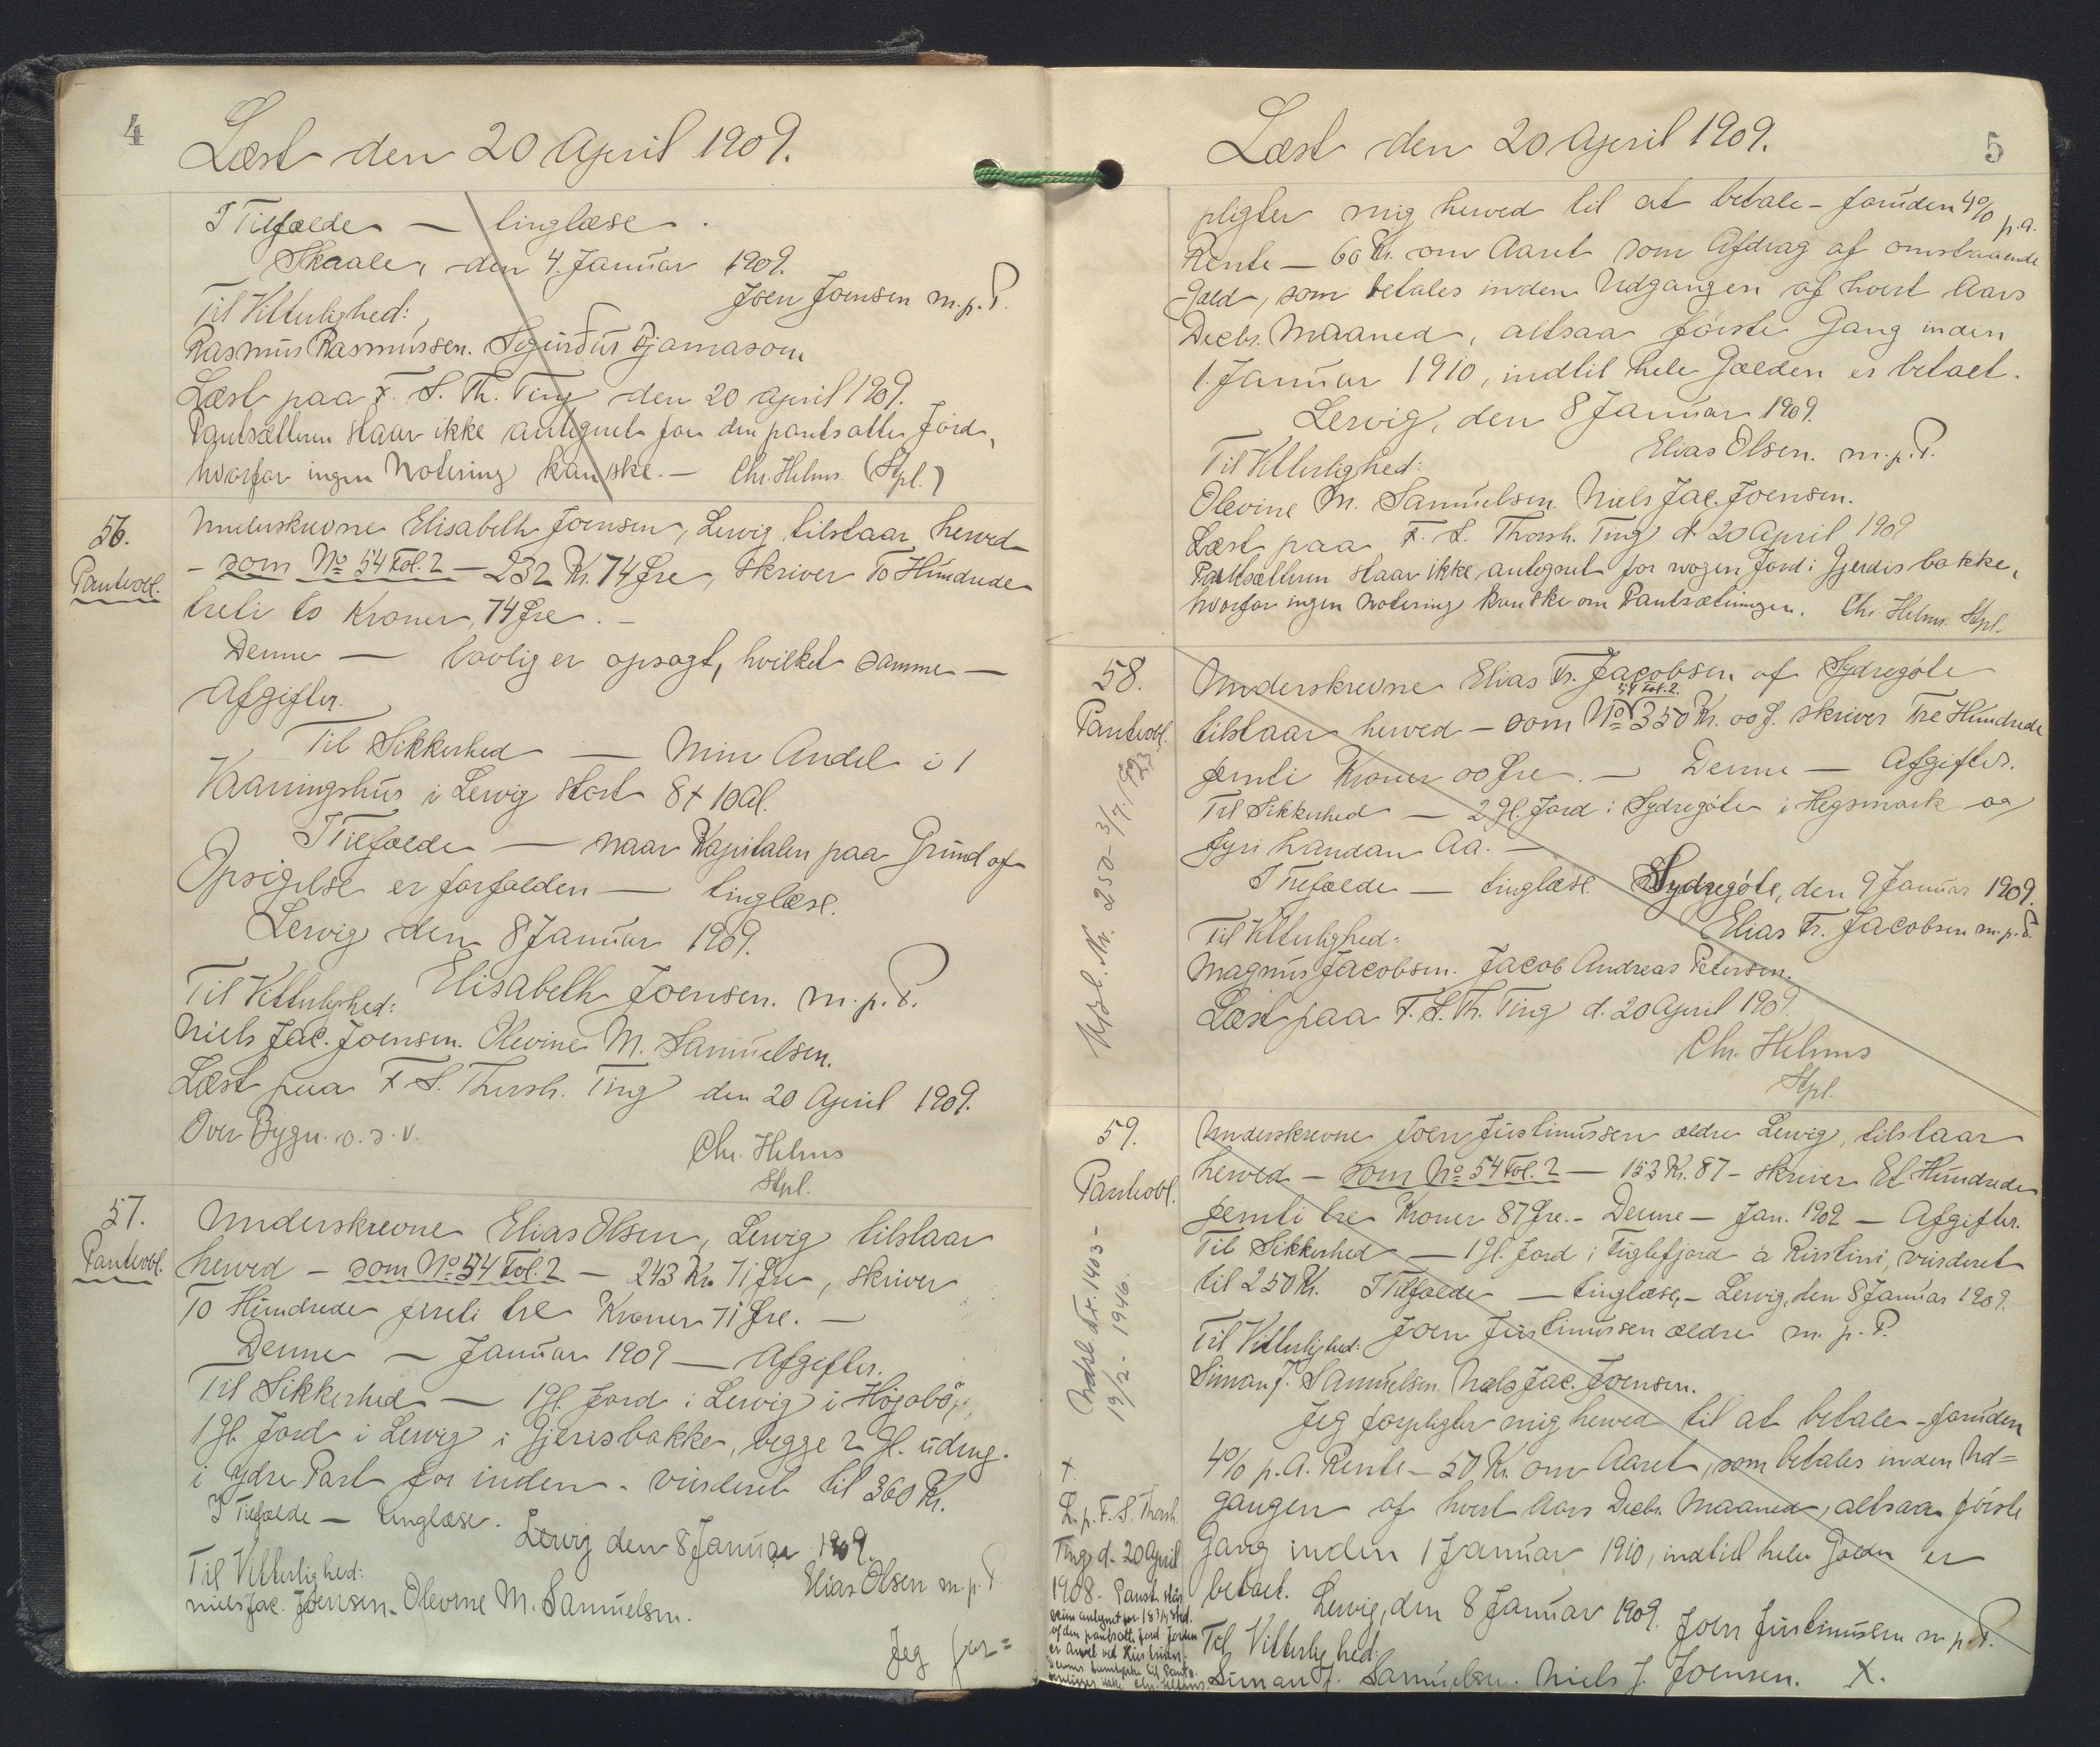 4
Læst den 20 April 1909.
I Tilfælde — tinglæse.
Skaale, den 4. Januar 1909.
Joen Joensen m.p.P.
Til Vitterlighed:
Rasmus Rasmussen. Sigurdur Bjarnason
Læst paa F. S. Th. Ting den 20 April 1909.
Pantsætteren staar ikke antegnet for den pantsatte Jord,
hvorfor ingen Notering kan ske. — Chr. Helms. (Stpl.)
56.
Panteobl.
Underskrevne Elisabeth Joensen, Lervig, tilstaar herved
- som No 54 Fol. 2 — 232 Kr. 74 Øre, skriver To Hundrede
treti to Kroner, 74 Øre. —
Denne — lovlig er opsagt, hvilket samme —
Afgifter.
Til Sikkerhed — Min Andel i 1
Vaaningshus i Lervig stort 8 x 10 Al.
I Tilfælde — naar Kapitalen paa Grund af
Opsigelse er forfalden — tinglæse.
Lervig den 8 Januar 1909.
Til Vitterlighed: Elisabeth Joensen. m.p.P.
Niels Jac. Joensen. Olevine M. Samuelsen.
Læst paa F. S. Thorsh. Ting den 20 April 1909.
Over Bygn. o.s.v.
Chr. Helms
Stpl.
57.
Panteobl.
Underskrevne Elias Olsen, Lervig tilstaar
herved - som No 54 Fol. 2 - 243 Kr. 71 Øre, skriver
To Hundrede fireti tre Kroner 71 Øre. —
Denne — Januar 1909 — Afgifter.
Til Sikkerhed — 1 Gl. Jord i Lervig i Højabø,
1 Gl. Jord i Lervig i Gjerisbakke, begge 2 Gl. udmg.
i ydre Part for inden - vurderet til 360 Kr.
I Tilfælde — tinglæse. Lervig den 8 Januar 1909.
Til Vitterlighed: Elias Olsen m.p.P.
Niels Jac. Joensen. Olevine M. Samuelsen.
Jeg for=
5
Læst den 20 April 1909.
pligter mig herved til at betale - foruden 4% p.a.
Rente — 60 Kr. om Aaret som Afdrag af omstaaende
Gæld, som betales inden Udgangen af hvert Aars
Decbr. Maaned, altsaa første Gang inden
1. Januar 1910, indtil hele Gælden er betalt.
Lervig, den 8 Januar 1909.
Til Vitterlighed: Elias Olsen. m.p.P.
Olevine M. Samuelsen. Niels Jac. Joensen.
Læst paa F. S. Thorsh. Ting d. 20 April 1909
Pantsætteren staar ikke antegnet for nogen Jord i Gjerdisbakke,
hvorfor ingen Notering kan ske om Pantsætningen. Chr. Helms. Stpl.
58.
Panteobl.
Udsl. Nr. 250 - 3/7. 1923
Underskrevne Elias Fr. Jacobsen af Sydregøte
54 Fol. 2.
tilstaar herved - som No 350 Kr. 00 Ø. skriver Tre Hundrede
femti Kroner 00 Øre. — Denne — Afgifter.
Til Sikkerhed — 2 Gl. Jord i Sydregøte i Hegsmark og
fyri handan Aa. —
I Tilfælde — tinglæse. Sydregøte, den 9 Januar 1909.
Elias Fr. Jacobsen m.p.P.
Til Vitterlighed:
Magnus Jacobsen. Jacob Andreas Petersen.
Læst paa F. S. Th. Ting d. 20 April 1909.
Chr. Helms
Stpl.
59.
Panteobl.
Udsl. Nr. 1403 -
19/2 - 1946.
Underskrevne Joen Justinussen ældre Lervig, tilstaar
herved - som No 54 Fol. 2 — 153 Kr. 87 - skriver Et Hundrede
femti tre Kroner 87 Øre. - Denne — Jan. 1909 — Afgifter.
Til Sikkerhed — 1 Gl. Jord i Fuglefjord a Rustini, vurderet
til 250 Kr. I Tilfælde — tinglæse, - Lervig, den 8 Januar 1909.
Til Vitterlighed: Joen Justinussen ældre m.p.P.
Simon J. Samuelsen Niels Jac. Joensen.
Jeg forpligter mig herved til at betale - foruden
4% p.a. Rente - 50 Kr. om Aaret, som betales inden Ud=
gangen af hvert Aars Decbr. Maaned, altsaa første
Gang inden 1 Januar 1910, indtil hele Gælden er
betalt. Lervig, den 8 Januar 1909. Joen Justinussen m.p.P.
Til Vitterlighed:
Simon J. Samuelsen. Niels J. Joensen. X.
X.
L. p. F. S. Thorsh.
Ting d. 20 April
1908.